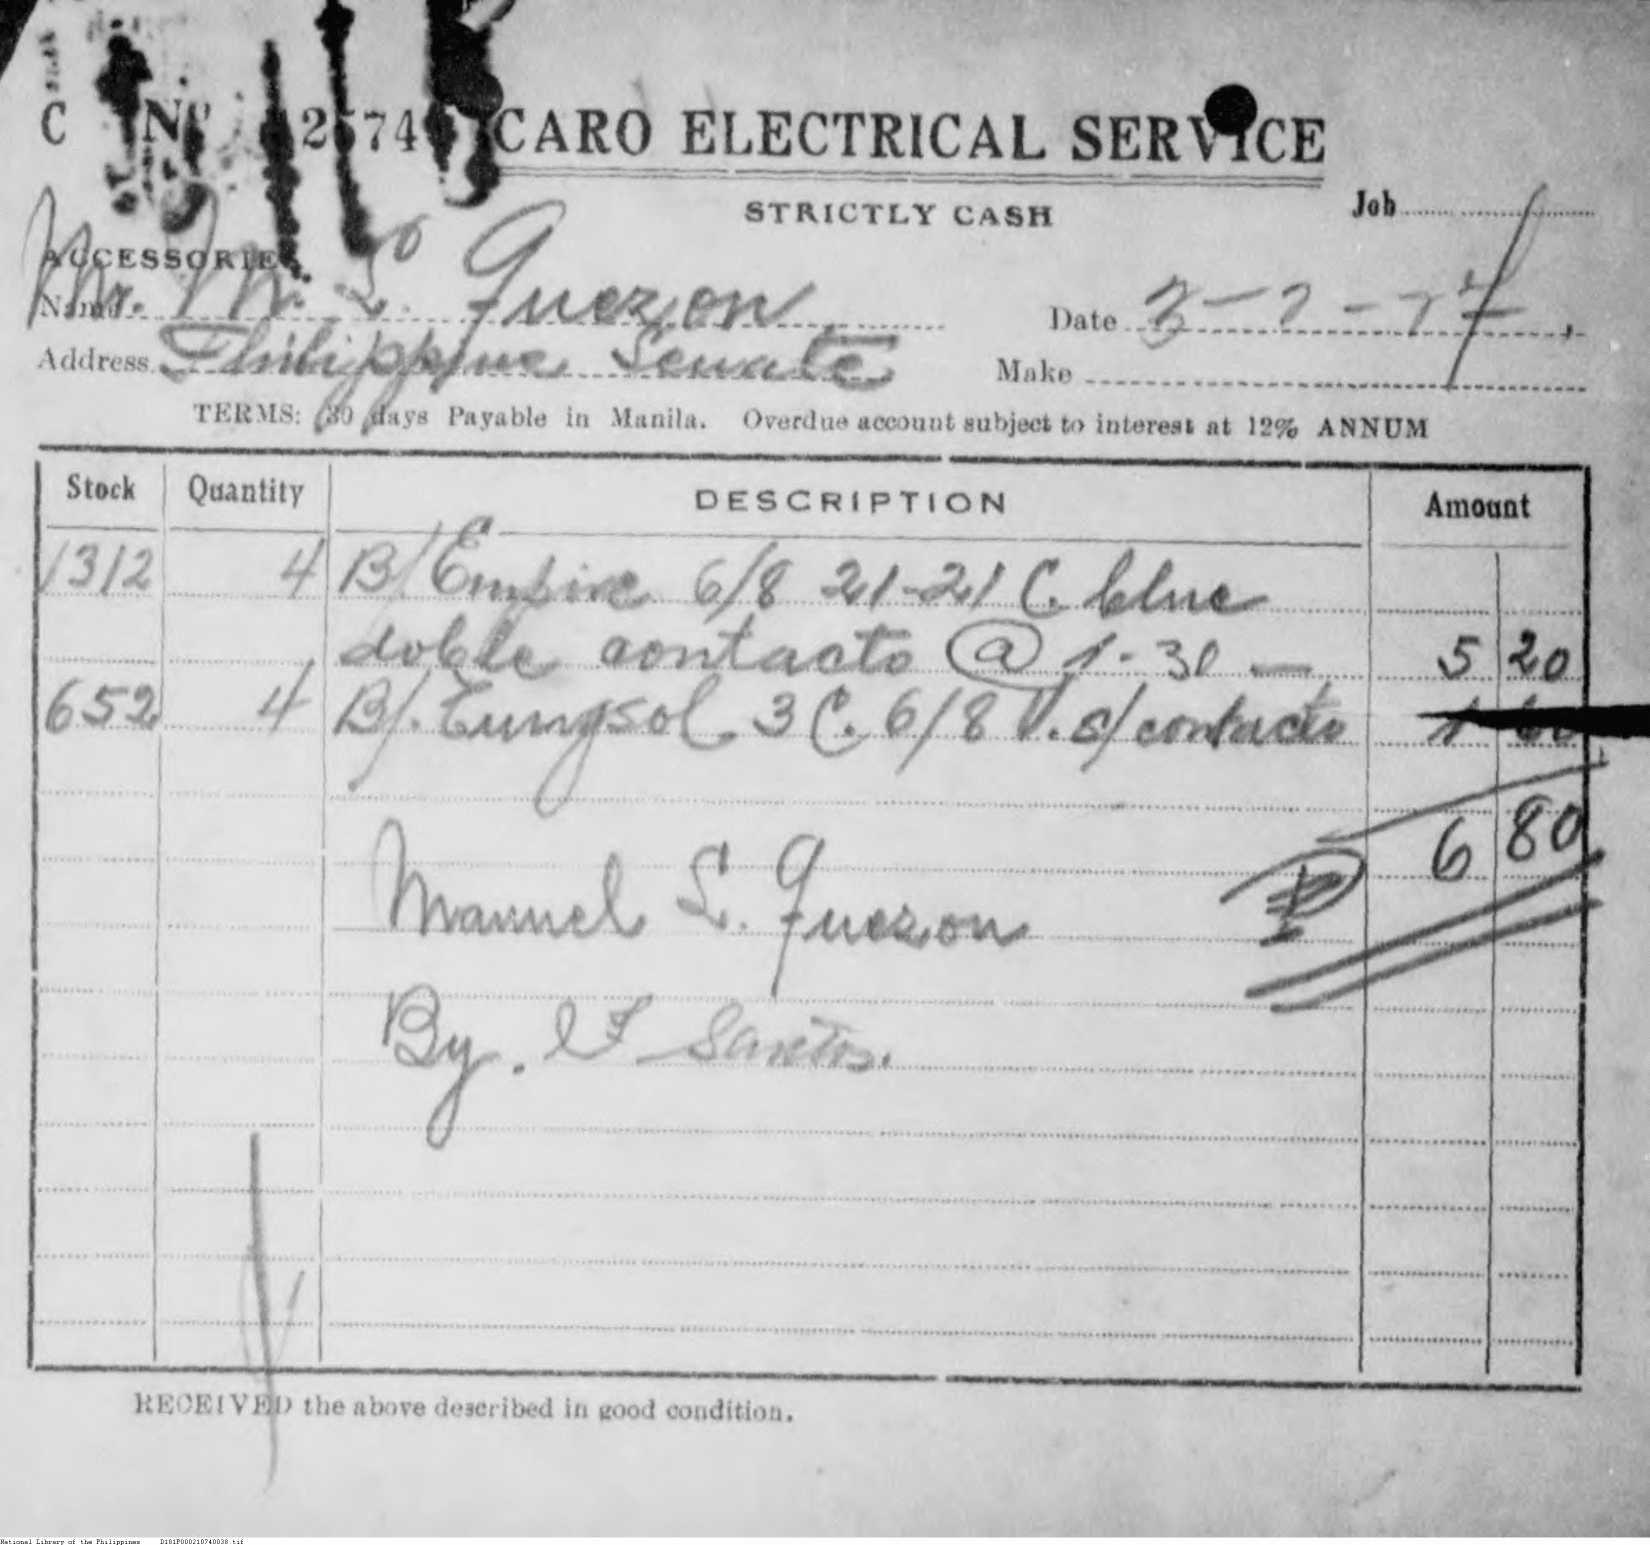 C Nº CARO ELECTRICAL SERVICE
STRICTLY CASH
Job
ACCESSORIES
Name Mr. M. L. Quezon
Date
Address Philippine Senate
Make
TERMS: 30 days Payable in Manila. Overdue account subject to interest at 12% ANNUM
Stock Quantity DESCRIPTION Amount
1312 4 B/ Empire 6/8 21-21 C. blue
doble contacto @ 1-30 — 5 20
652 4 B/. Tungsol 3 C. 6/8 V. s/ contacto 1 60
₱ 6 80
Manuel L. Quezon
By. Santos.
RECEIVED the above described in good condition.
National Library of the Philippines D101P000210740038.tif